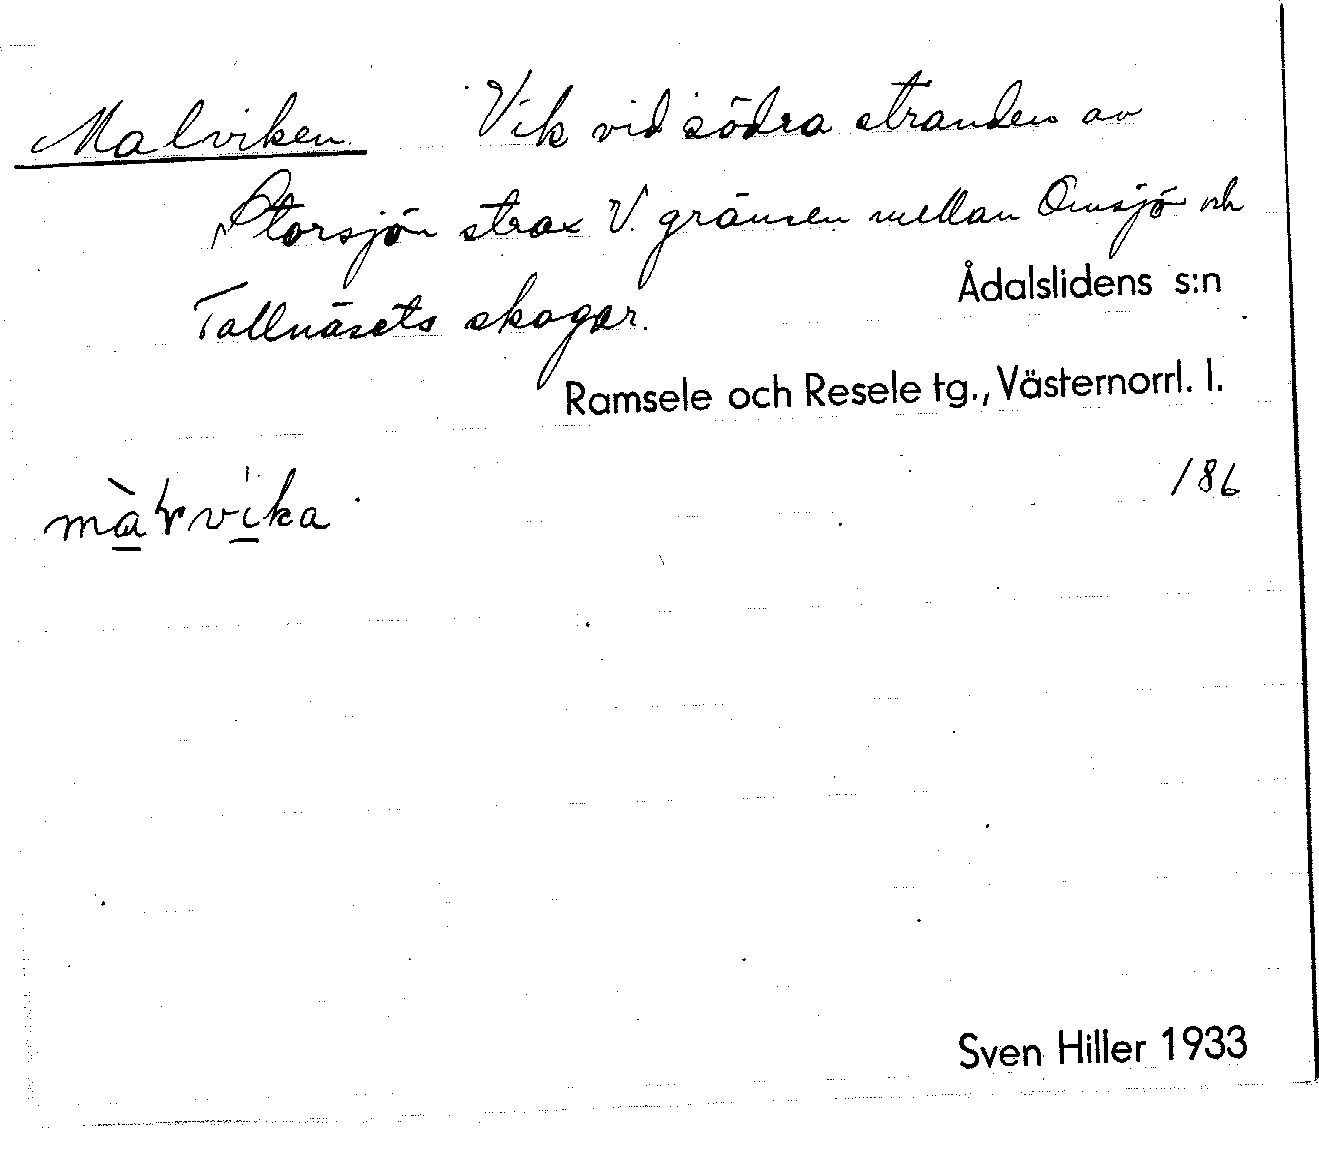 Malviken Vik vid södra stranden av
Storsjön strax V. gränsen mellan Omsjö och
Tallnäsets skogar.
Ådalslidens s:n
Ramsele och Resele tg., Västernorrl. l.
186
Sven Hiller 1933